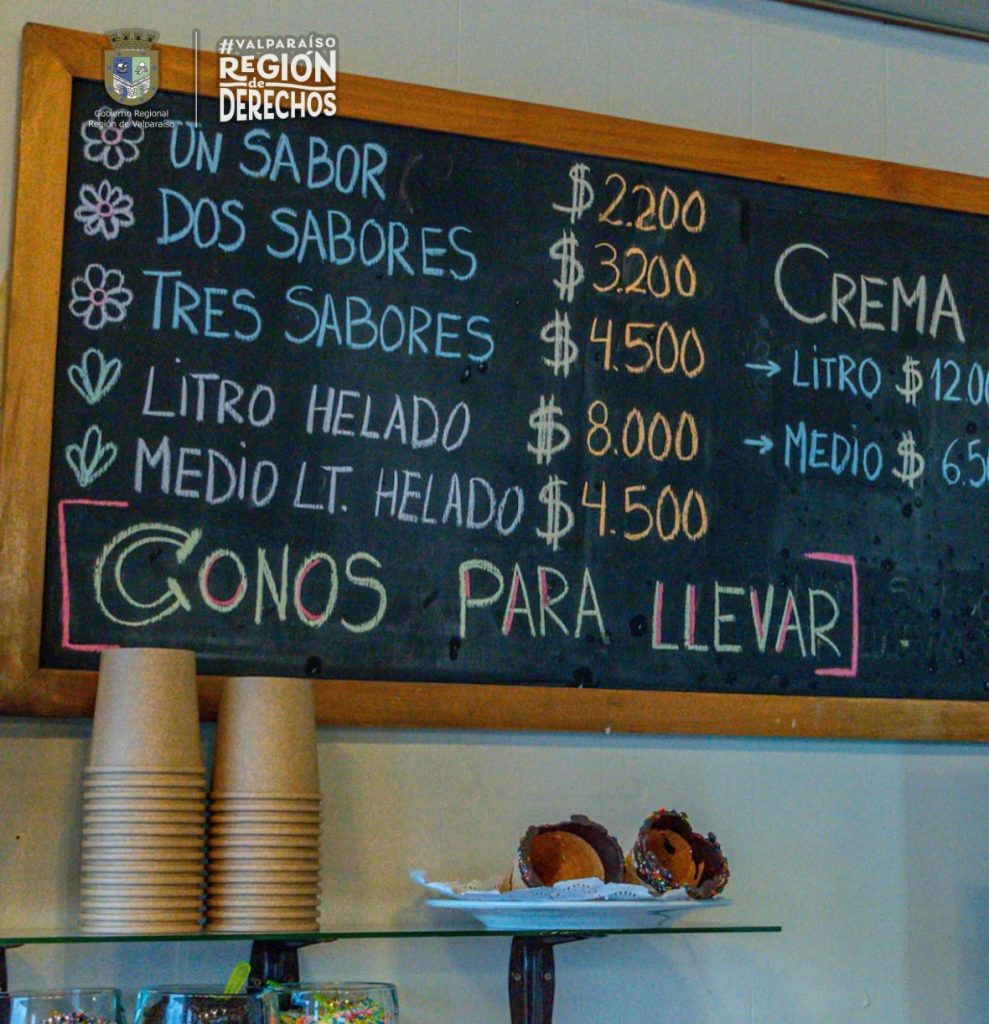 #VALPARAÍSO
REGIÓN
de
DERECHOS
Gobierno Regional
Región de Valparaíso
UN SABOR $2.200
DOS SABORES $3.200
TRES SABORES $4.500
LITRO HELADO $8.000
MEDIO LT. HELADO $4.500
CONOS PARA LLEVAR
CREMA
→ LITRO $12.00
→ MEDIO $6.50